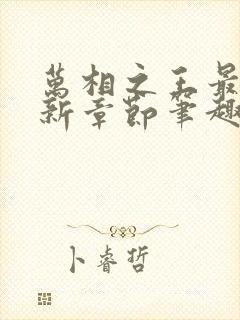 萬相之王最
新章節筆趣
卜睿哲